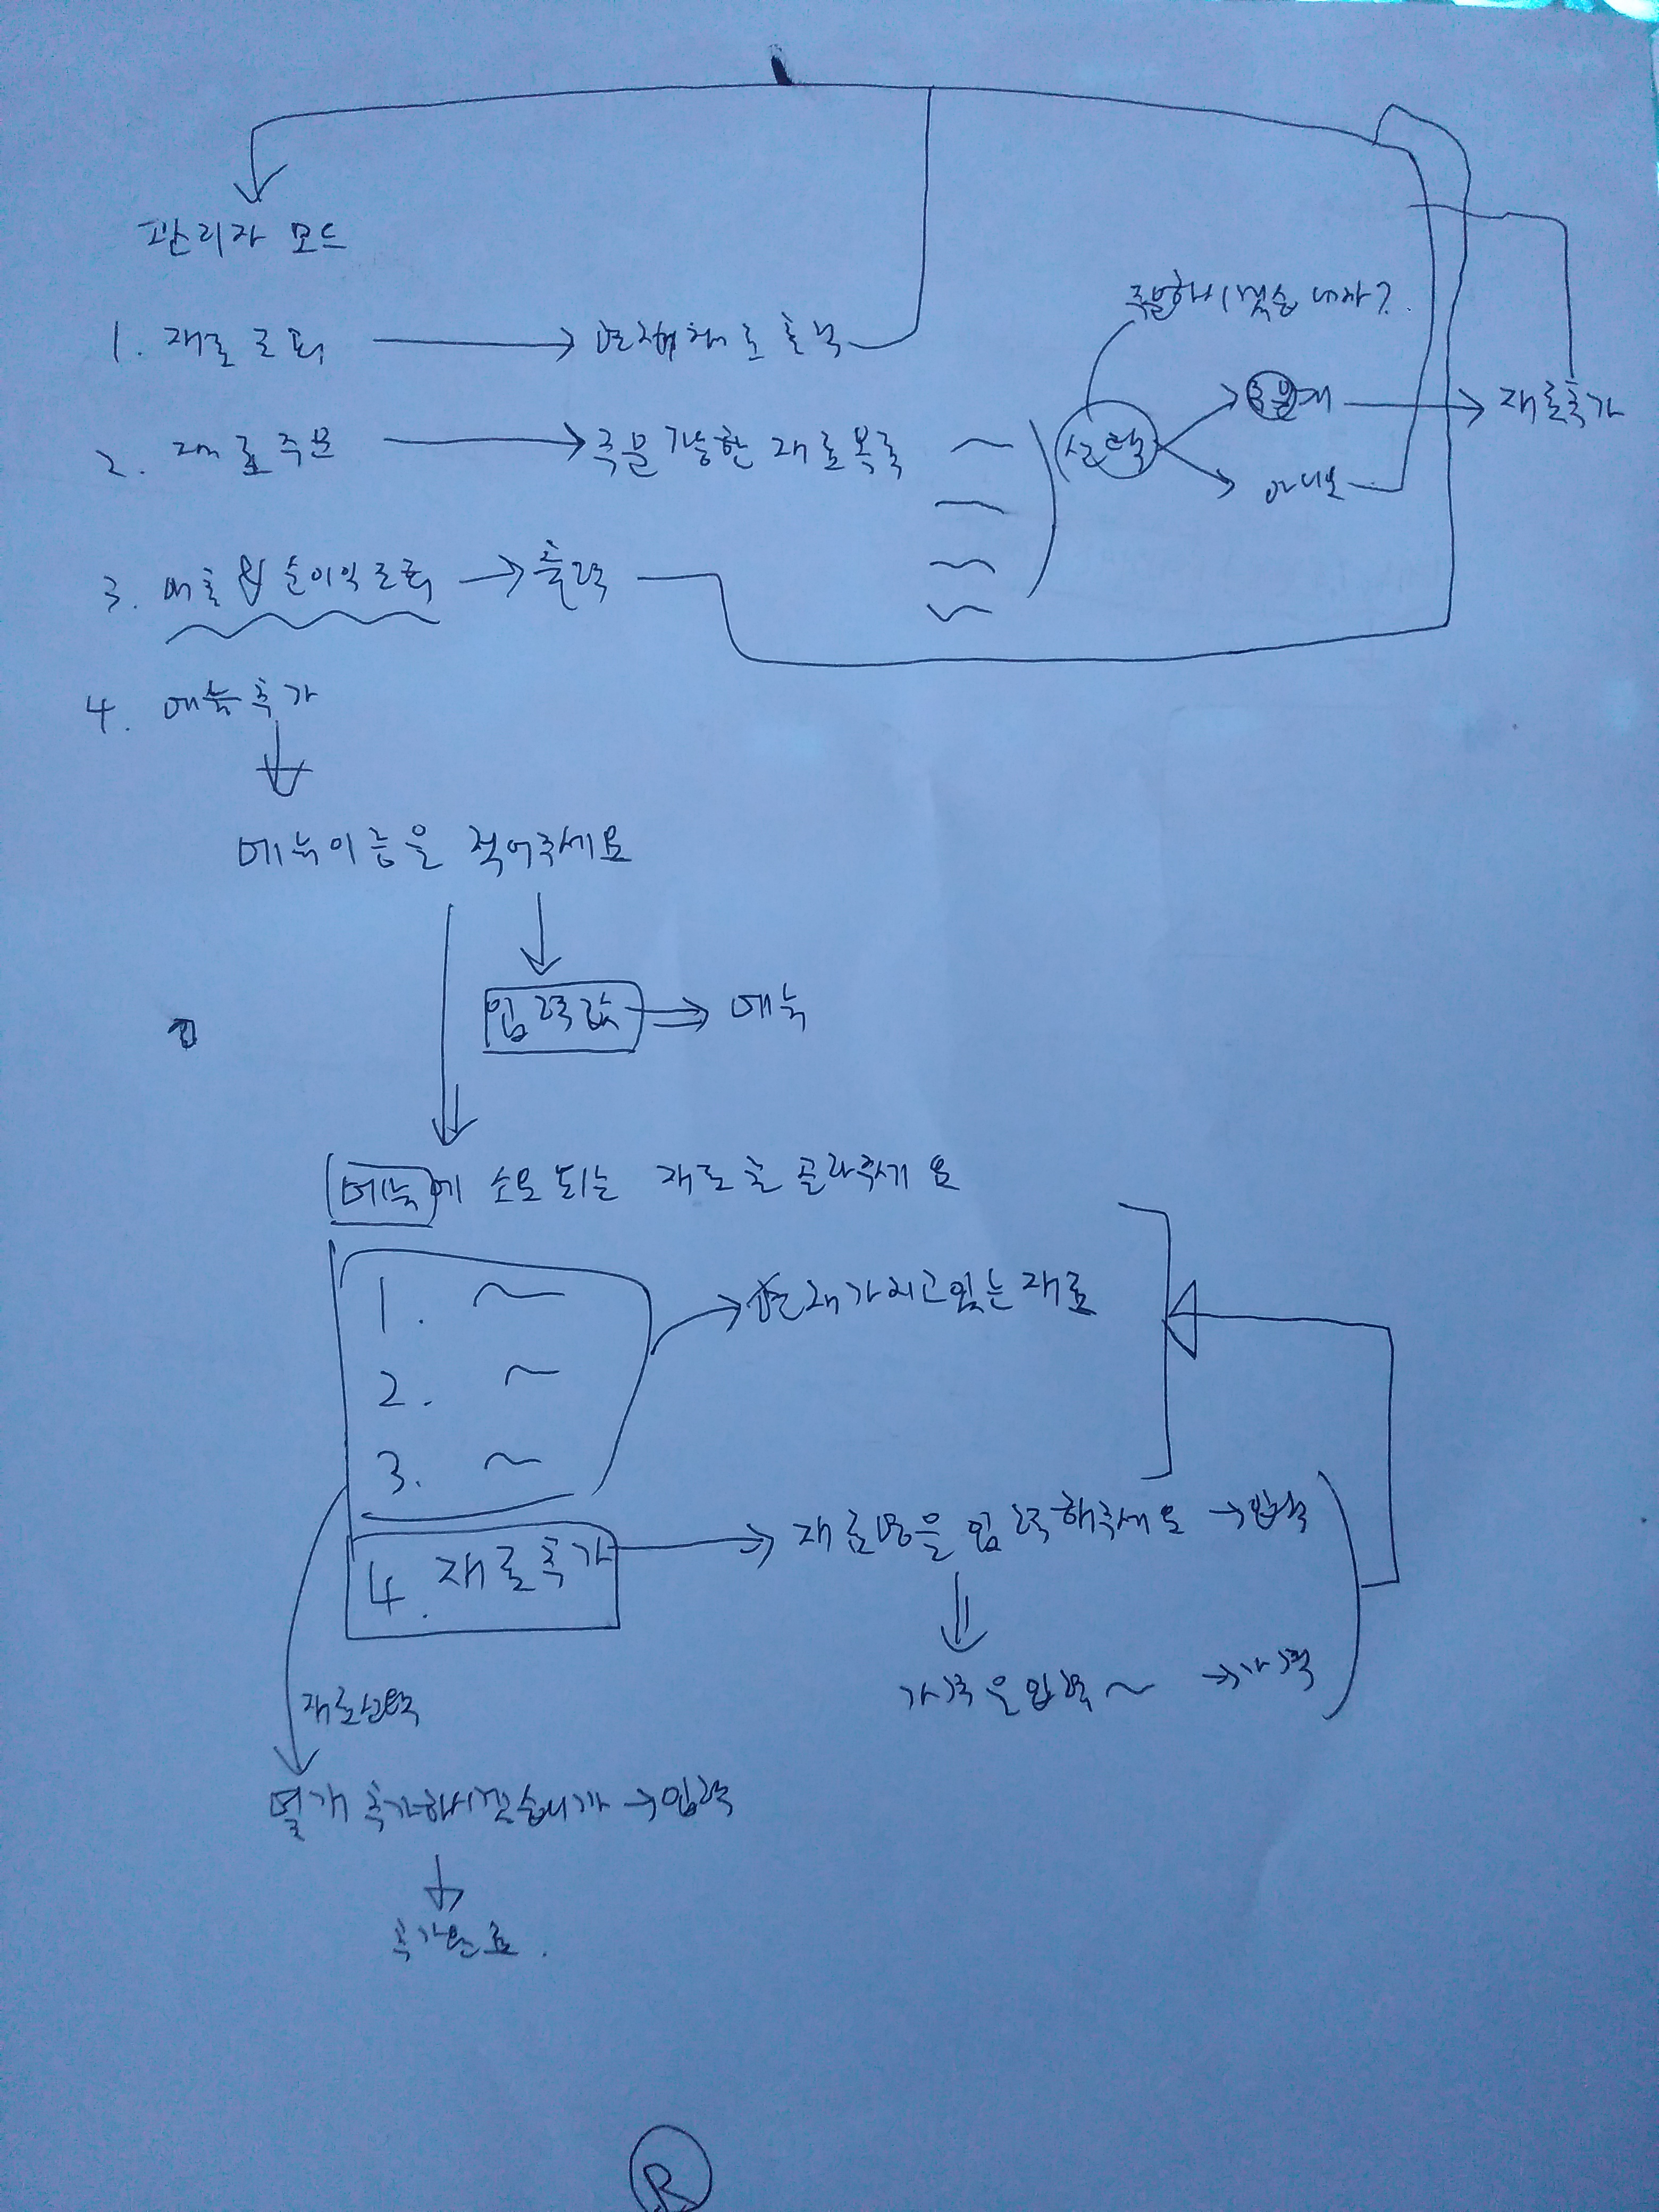 관리자 모드
1. 재료 조회 → 현재재료 출력
주문하시겠습니까?
2. 재료주문 → 주문가능한 재료목록 선택
재료추가
아니오
3. 매출 & 순이익 조회 → 출력
4. 메뉴추가
메뉴이름을 적어주세요
입력값 ⇒ 메뉴
메뉴에 소모되는 재료를 골라주세요
1. ~ → 현재 가지고 있는 재료
2. ~
3. ~
4. 재료추가 → 재료명을 입력해주세요 → 입력
가격을입력 ~ → 가격
재료선택
몇개 추가하시겠습니까 → 입력
추가완료.
R